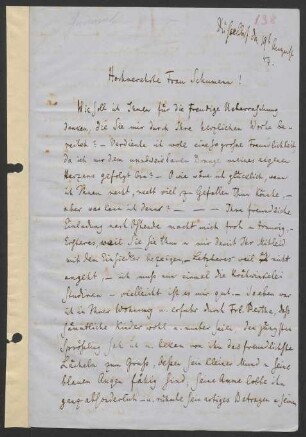 132
Düsseldorf den 19t August
Hochverehrte Frau Schumann!
Wie soll ich Ihnen für die freudige Ueberraschung
danken, die Sie mir durch Ihre herzlichen Worte be-
reitet? – Verdiente ich wohl eine so große Freundlichkeit
da ich nur dem unwiderstehlichen Drange meines eigenen
Herzens gefolgt bin? – O wie wäre ich glücklich, wenn
ich Ihnen recht, recht viel zu Gefallen thun könnte,
aber was kann ich denn? – – – Ihre freundliche
Einladung nach Ostende macht mich froh u traurig –
Ersteres weil Sie sie thun u mir damit Ihr Mitleid
mit dem Einsiedler bezeigen, Letzteres weil es nicht
angeht, – ich muß nun einmal die
studieren – vielleicht ist es mir gut. – Soeben war
ich in Ihrer Wohnung u erfuhr durch Frl. Bertha, daß
sämmtliche Kinder wohl u munter seien. den jüngsten
Sprößling sah ich u bekam von ihm das freundlichste
Lächeln zum Gruße, dessen sein kleiner Mund u seine
blauen Augen fähig sind. Seine Amme lobte ihn
ganz absonderlich – u rühmte sein artiges Betragen u seine